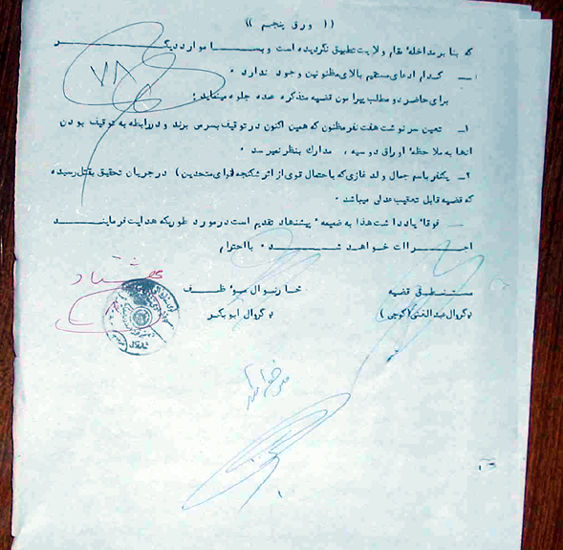 (( ورق پنجم ))
که بنا بر مداخلهٔ مقام ولایت تطبیق نگردیده است و بسا موارد دیگر
ـ کدام ادعای مستقیم بالای مظنونین وجود ندارد .
برای حاضر دو مطلب پیرامون قضیه متذکره عمده جلوه مینماید :
۱ـ تعین سرنوشت هفت نفر مظنون که همین اکنون در توقیف بسر می برند و در رابطه به توقیف بودن
انها به ملاحظهٔ اوراق دوسیه ، مدارک بنظر نمیرسد .
۲ـ یکنفر باسم جمال ولد غازی که با احتمال قوی از اثر شکنجه (قوای متحدین) در جریان تحقیق بقتل رسیده
که قضیه قابل تعقیب عدلی میباشد .
ـ فوقاً یادداشت هذا به ضمیمهٔ پیشنهاد تقدیم است در مورد طوریکه هدایت فرمایند
اجراات خواهد شد . با احترام
مستنطق قضیه
ډگروال عبدالغنی (کوچی)
څارنوال مؤظف
ډگروال ابوبکر
هشتاد
۷۸